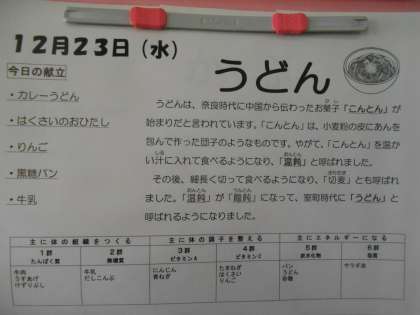 12月23日(水)
うどん
今日の献立
・カレーうどん
・はくさいのおひたし
・りんご
・黒糖パン
・牛乳
うどんは、奈良時代に中国から伝わったお菓子「こんとん」が
始まりだと言われています。「こんとん」は、小麦粉の皮にあんを
包んで作った団子のようなものです。やがて、「こんとん」を温か
い汁に入れて食べるようになり、「温飩」と呼ばれました。
その後、細長く切って食べるようになり、「切麦」とも呼ばれ
ました。「温飩」が「饂飩」になって、室町時代に「うどん」と
呼ばれるようになりました。
主に体の組織をつくる 主に体の調子を整える 主にエネルギーになる
1群 2群 3群 4群 5群 6群
たんぱく質 無機質 ビタミンA ビタミンC 炭水化物 脂質
牛肉 牛乳 にんじん たまねぎ パン サラダ油
うすあげ だしこんぶ 青ねぎ はくさい うどん
けずりぶし りんご 砂糖